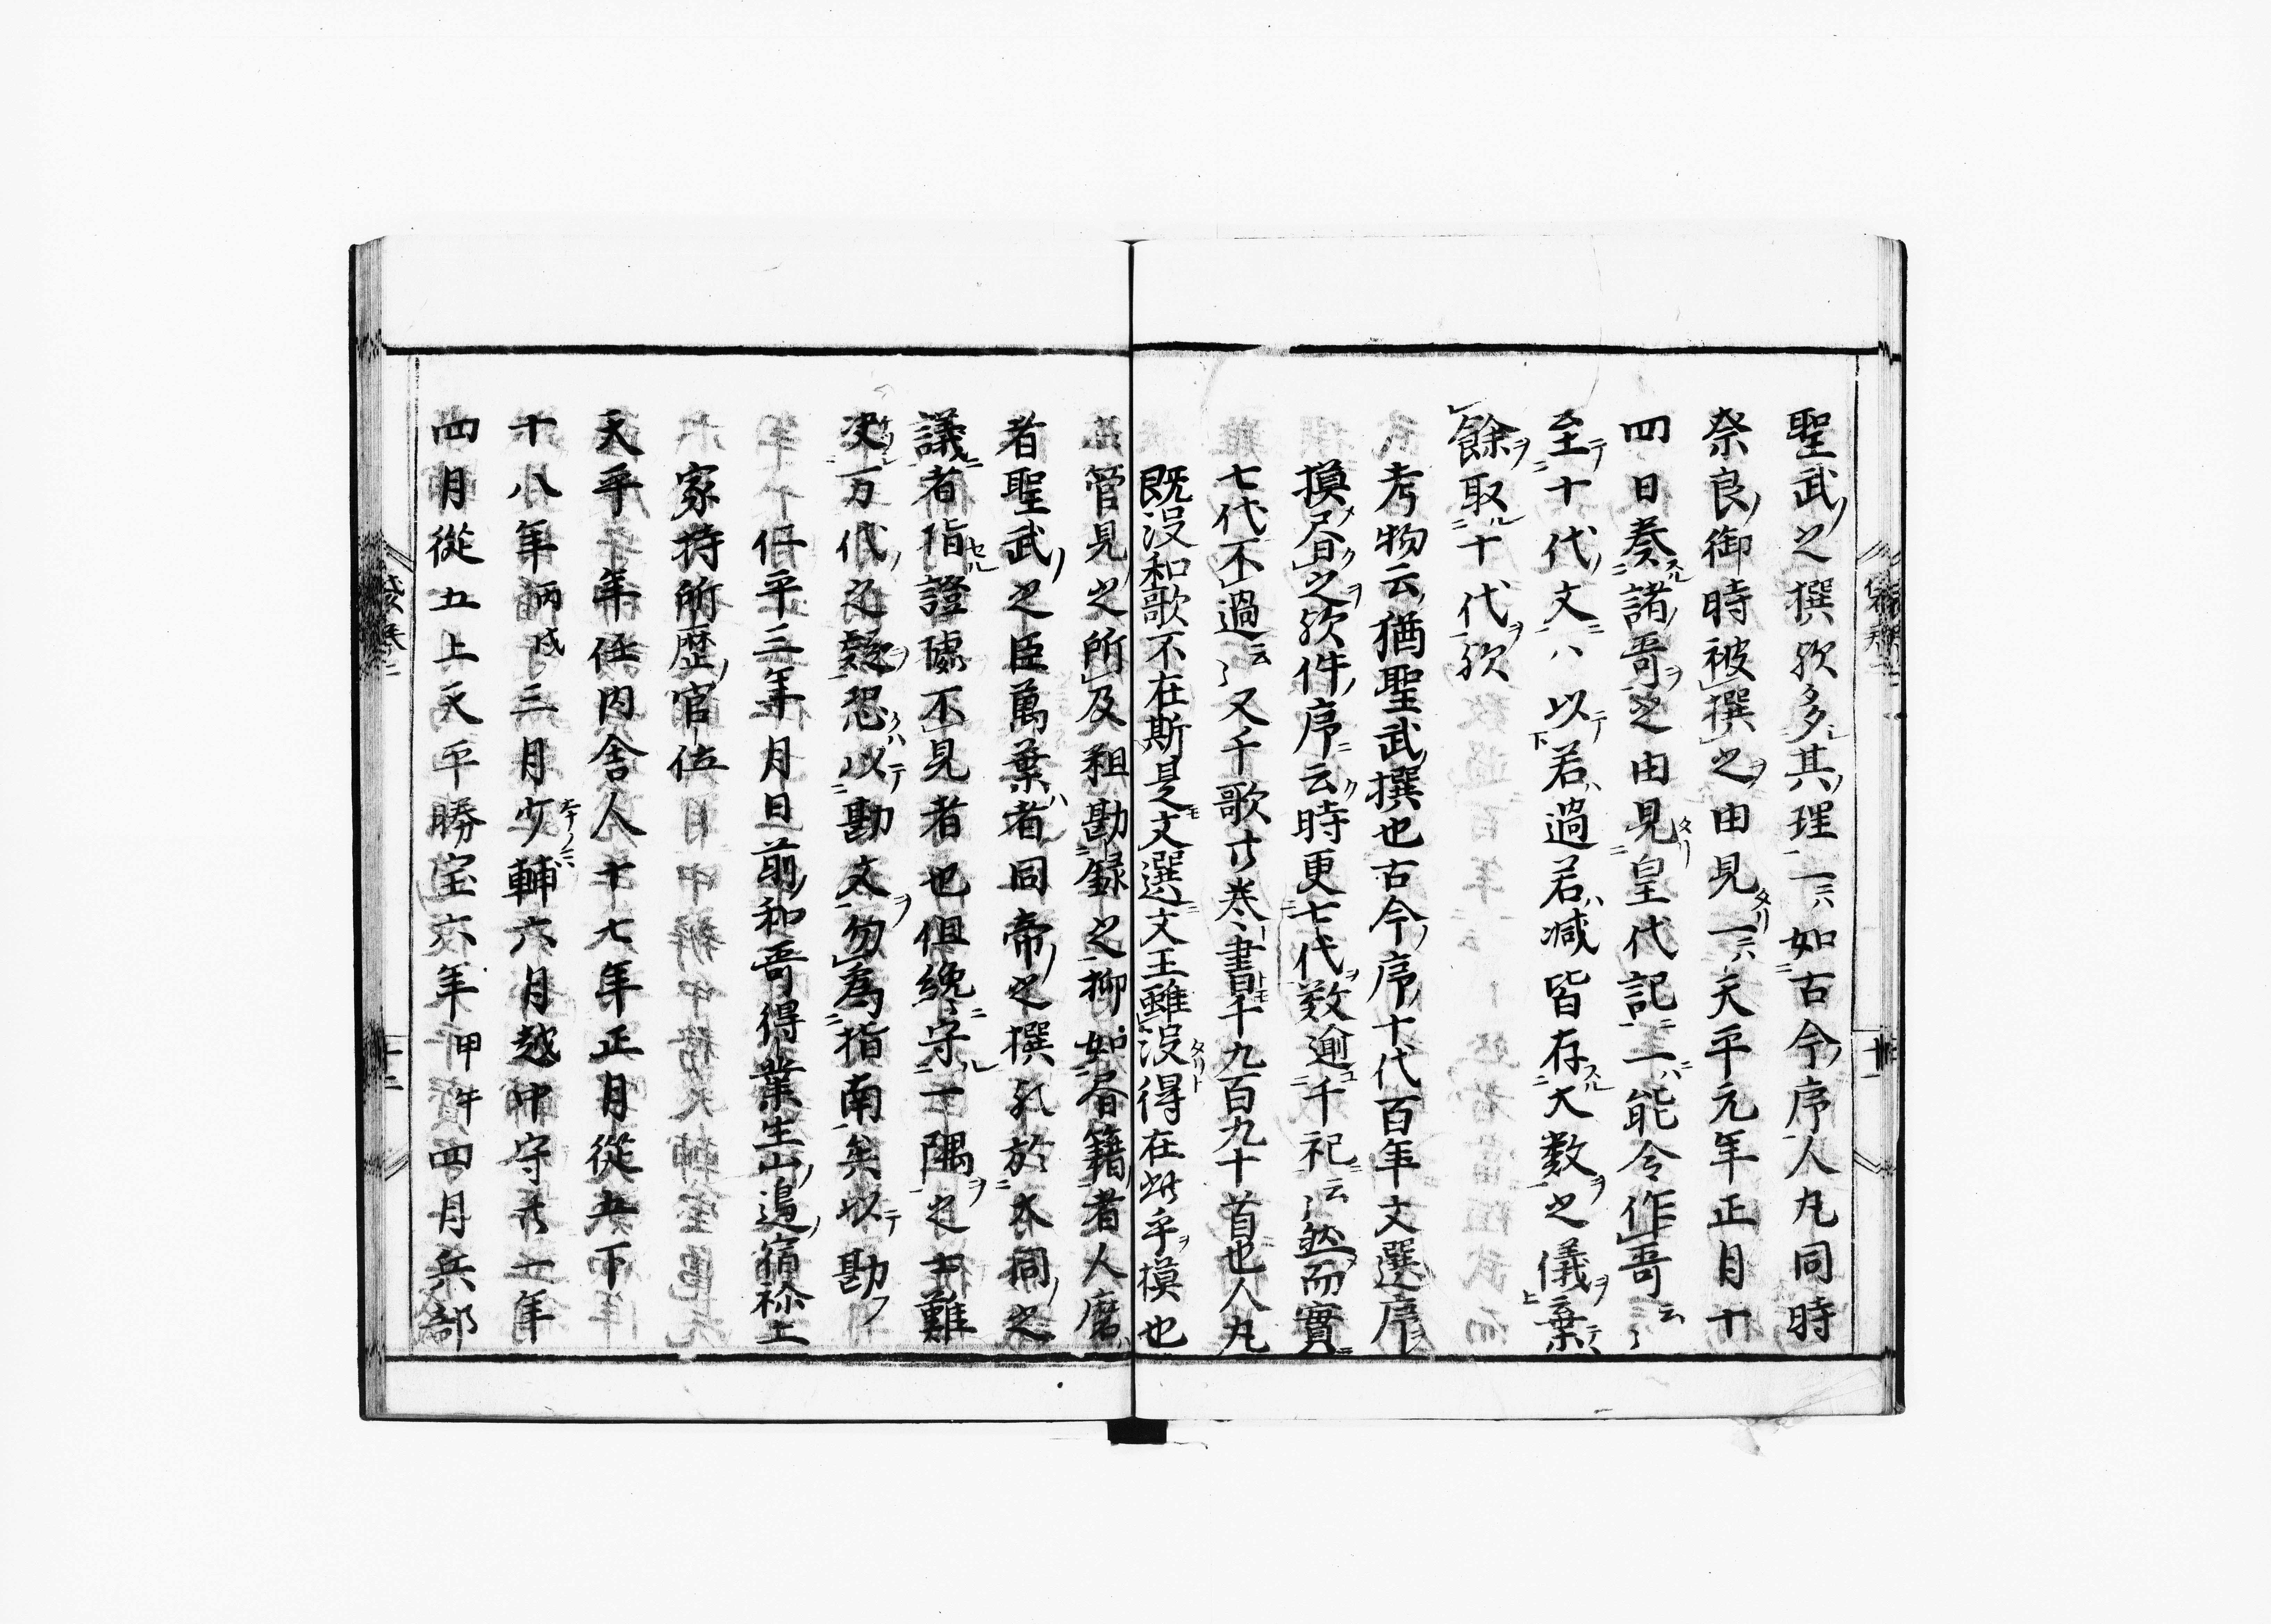 聖武之撰歟多其理一ニハ如古今序人丸同時
奈良御時被撰之由見タリ一ニハ天平元年正月十
四日奏諸哥之由見皇代記一ニハ能令作哥云々
至十代文ハ以若過若减皆存大数之儀棄
餘取十代歟
考物云猶聖武撰也古今序十代百年文選序
摸昼之歟件序云時更七代数逾千祀云々然而實
七代不過云々又千歌廿巻書千九百九十首也人丸
既没和歌不在斯是文選文王雖没得在此乎摸也
管見之所及粗勘録之抑如昏籍者人麿
者聖武之臣萬葉者同帝之撰歟於大同之
議者指證據不見者也但纔守一隅之 難
决万代之疑恐以勘文勿為指南矣以勘
仁平三年月日前和哥得業生山邉宿祢上
家持所歴官位
天平 年任内舎人十七年正月從五下
十八年丙戌三月少輔六月越中守 年
四月從五上天平勝宝六年甲午四月兵部
十一
十二